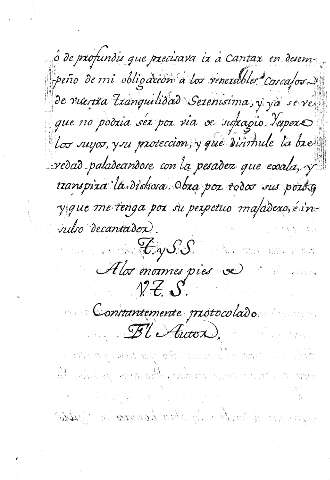 ó de profundis que precisava ir á cantar en desem-
peño de mi obligacion á los venerables Cascajos
de vuestra tranquilidad Serenisima, y ya se ve
que no podria sér por via de sufragio. Supere
los suyos, y su proteccion, y que disimule la bre
vedad paladeandose con la pesadez que exala, y
transpira la dichosa Obra por todos sus poros,
y que me tenga por su perpetuo majadero, é in-
sulso decantador.
T. y S. S.
A los enormes pies de
V. T. S.
Constantemente protocolado.
El Autor.